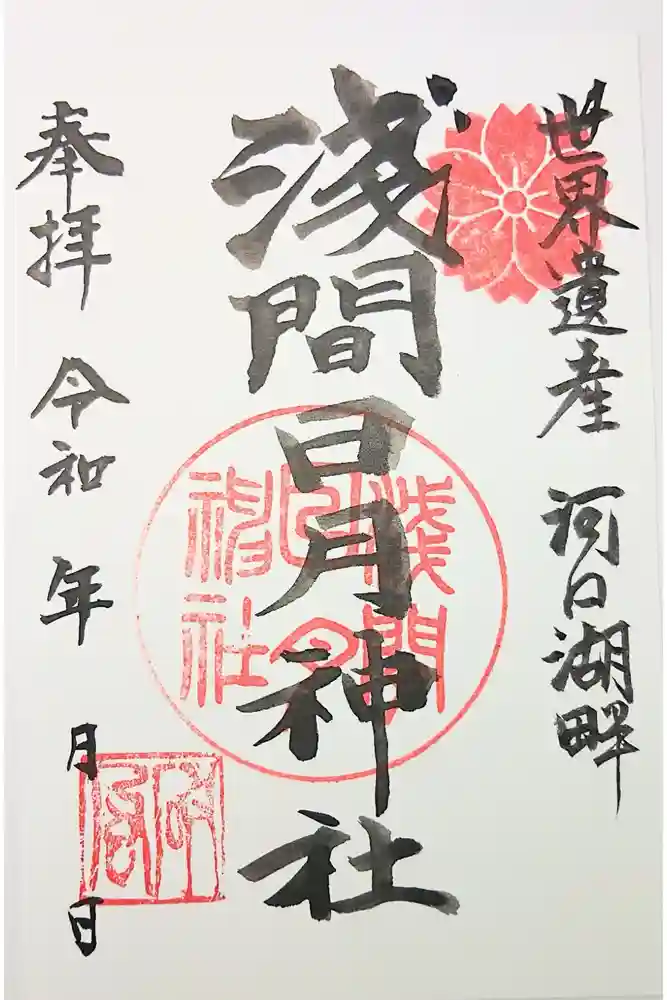 世界遺産 河口湖畔
浅間日月神社
浅間
日月
神社
奉拝 令和 年 月 日